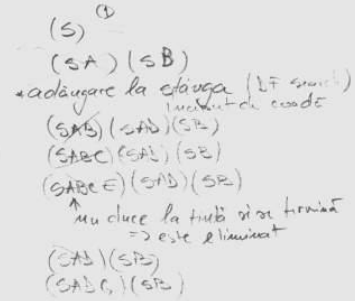 ①
(S)
(SA) (SB)
*adăugare la stânga (DF search)
(SAB) (SAD) (SB)
(SABC) (SAD) (SB)
(SABCE) (SAD) (SB)
nu duce la țintă și se termină
=> este eliminat
(SAD) (SB)
(SB)